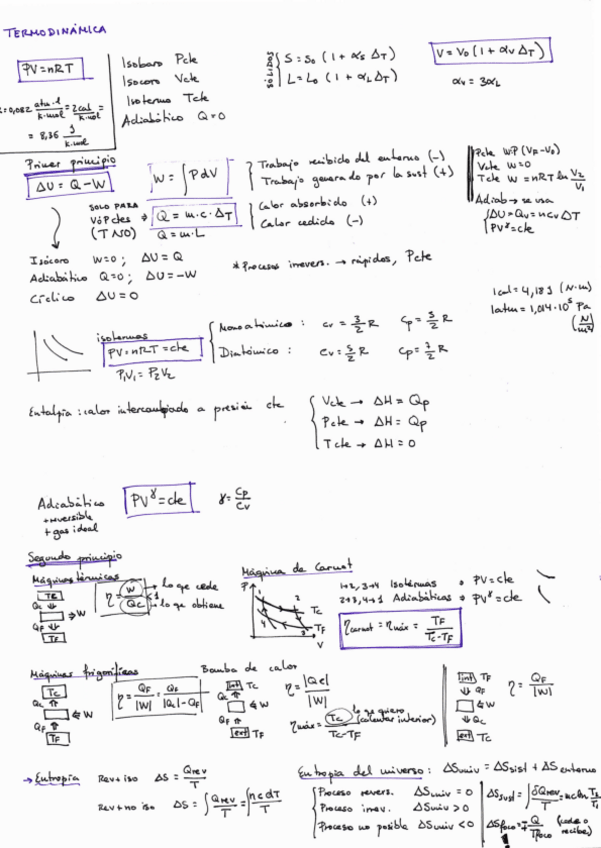 TERMODINÁMICA
PV=nRT
R=0,082 atm·l/K·mol = 2cal/K·mol =
= 8,36 J/K·mol
Isobaro Pcte
Isocoro Vcte
Isotermo Tcte
Adiabático Q=0
SÓLIDOS
S = S₀ (1 + αs ΔT)
L = L₀ (1 + αL ΔT)
V = V₀ (1 + αv ΔT)
αv = 3αL
Primer principio
ΔU = Q - W
W = ∫ P dV
Trabajo recibido del entorno (-)
Trabajo generado por la sust (+)
SOLO PARA
V ó P ctes → Q = m·c·ΔT
(T NO) Q = m·L
Calor absorbido (+)
Calor cedido (-)
Pcte W=P (VF-V0)
Vcte W=0
Tcte W = nRT ln V2/V1
Adiab → se usa
ΔU = Qv = ncv ΔT
PV^γ = cte
Isócoro W=0 ; ΔU = Q
Adiabático Q=0 ; ΔU = -W
Cíclico ΔU = 0
* Procesos irrevers. → rápidos, Pcte
1cal = 4,18J (N·m)
1atm = 1,014·10⁵ Pa
(N/m²)
isotermas
PV = nRT = cte
P1V1 = P2V2
Monoatómico : cv = 3/2 R Cp = 5/2 R
Diatómico : Cv = 5/2 R Cp = 7/2 R
Entalpia : calor intercambiado a presión cte
Vcte → ΔH = Qp
Pcte → ΔH = Qp
Tcte → ΔH = 0
Adiabático
+ reversible
+ gas ideal
PV^γ = cte
γ = Cp/Cv
Segundo principio
Máquinas térmicas
TC
QC
W
QF
TC
η = W/QC < 1
lo que cede
lo que obtiene
Máquina de Carnot
P
1
2
4
3
TC
TF
V
1→2, 3→4 Isotermas • PV = cte
2→3, 4→1 Adiabáticas • PV^γ = cte
ηcarnot = ηmáx = TF/TC-TF
Máquinas frigoríficas
TC
QC
W
QF
TF
η = QF/|W| = QF/|QC|-QF
Bomba de calor
int TC
QC
W
QF
ext TF
η = |QC|/|W|
ηmáx = TC/TC-TF
lo que quiero
(calentar interior)
int TF
QF
W
QC
ext TC
η = QF/|W|
→ Entropia
Rev + iso ΔS = Qrev/T
Rev + no iso ΔS = ∫ Qrev/T = ∫ ncdT/T
Entropia del universo : ΔSuniv = ΔSsist + ΔSentorno
Proceso revers. ΔSuniv = 0
Proceso irrev. ΔSuniv > 0
Proceso no posible ΔSuniv < 0
ΔSsust = ∫ δQrev/T = mc ln T2/T1
ΔSfoco = ∓ Q/Tfoco (cede o recibe)
!